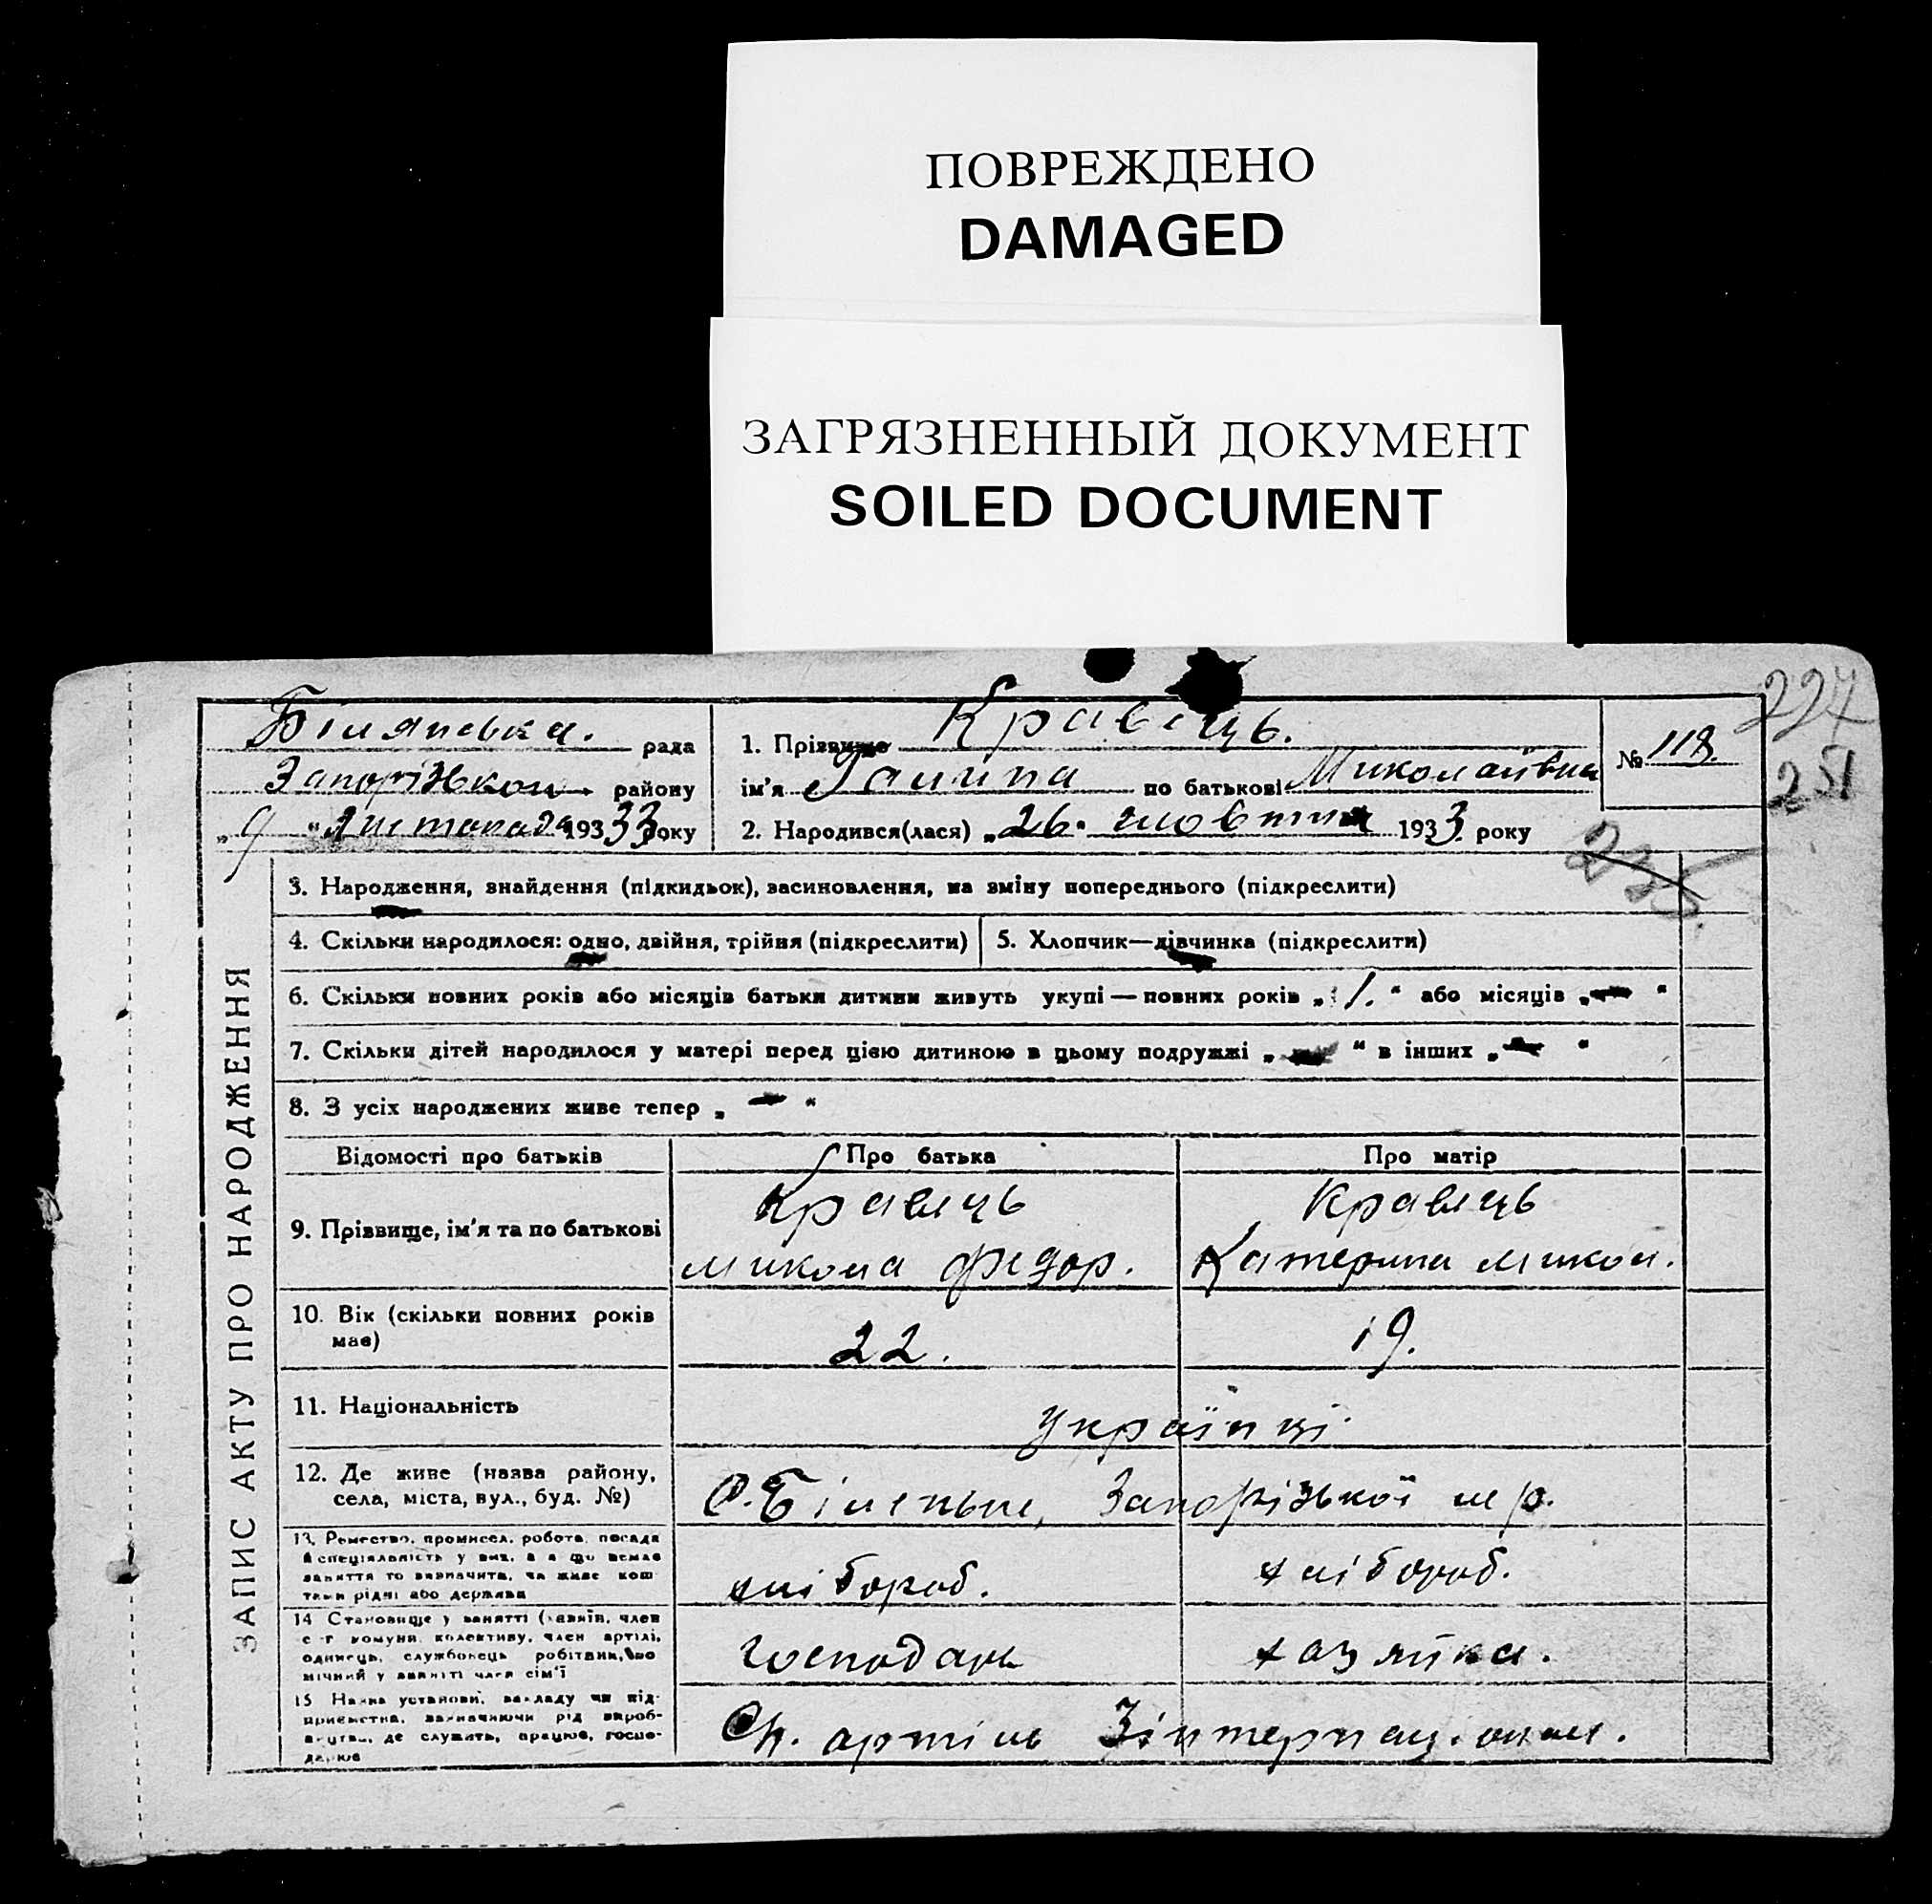 ПОВРЕЖДЕНО
DAMAGED
ЗАГРЯЗНЕННЫЙ ДОКУМЕНТ
SOILED DOCUMENT
227
251
235
рада
Запорізького району
"9" Листопада 1933 року
1. Прізвище Кравець.
ім'я Галина по батькові Миколаївна
№ 118.
2. Народився(лася) "26. жовтня 1933. року
ЗАПИС АКТУ ПРО НАРОДЖЕННЯ
3. Народження, знайдення (підкидьок), засиновлення, на зміну попереднього (підкреслити)
4. Скільки народилося: одно, двійня, трійня (підкреслити)
5. Хлопчик—дівчинка (підкреслити)
6. Скільки повних років або місяців батьки дитини живуть укупі — повних років „1.“ або місяців „—“
7. Скільки дітей народилося у матері перед цією дитиною в цьому подружжі „—“ в інших „—“
8. З усіх народжених живе тепер „—“
Відомості про батьків
Про батька
Про матір
9. Прізвище, ім'я та по батькові
Кравець
Микола Федор.
Кравець
Катерина Микол.
10. Вік (скільки повних років
має)
22.
19.
11. Національність
Українці
12. Де живе (назва району,
села, міста, вул., буд. №)
с. Біленьке, Запорізької м/р.
13. Ремество, промисел, робота, посада
й спеціяльність у них, а як що немає
заняття то визначити, чи живе кош-
тами рідні або держави
хлібороб.
хлібороб.
14 Становище у занятті (хазяїн, член
с-г комуни, колективу, член артілі,
одинець, службовець робітник, по-
мічний у занятті член сім'ї
господарь
хазяйка.
15 Назва установи, закладу чи під-
приємства, зазначаючи рід вироб-
ництва, де служить, працює, госпо-
дарює
артіль Інтернаціонал.